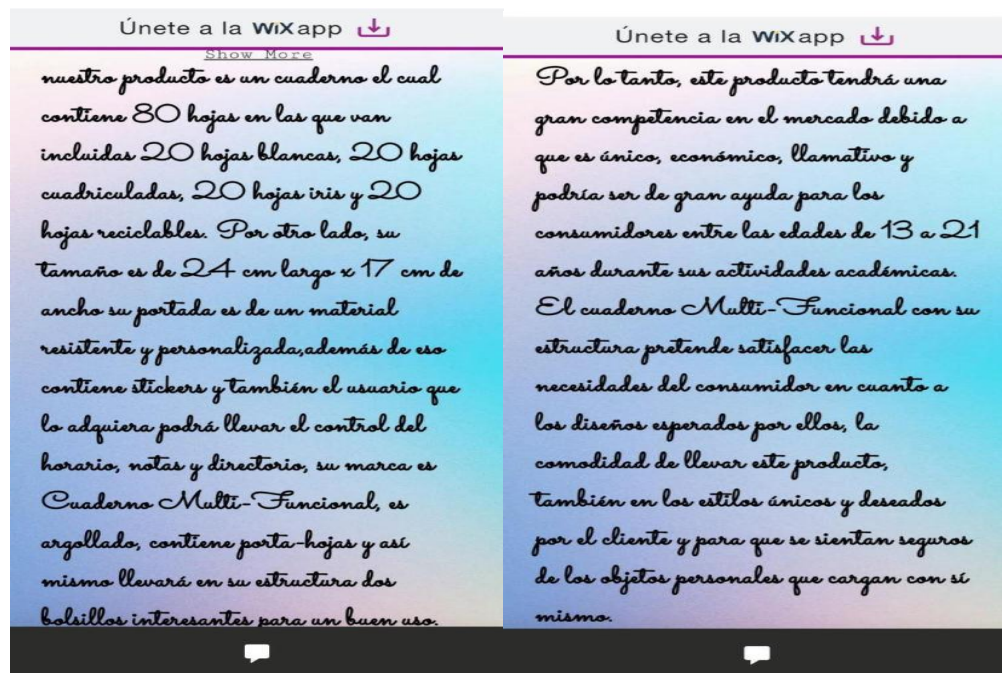 Únete a la WiX app
Show More
nuestro producto es un cuaderno el cual
contiene 80 hojas en las que van
incluidas 20 hojas blancas, 20 hojas
cuadriculadas, 20 hojas iris y 20
hojas reciclables. Por otro lado, su
tamaño es de 24 cm largo x 17 cm de
ancho su portada es de un material
resistente y personalizada,además de eso
contiene stickers y también el usuario que
lo adquiera podrá llevar el control del
horario, notas y directorio, su marca es
Cuaderno Multi-Funcional, es
argollado, contiene porta-hojas y así
mismo llevará en su estructura dos
bolsillos interesantes para un buen uso.
Únete a la WiX app
Por lo tanto, este producto tendrá una
gran competencia en el mercado debido a
que es único, económico, llamativo y
podría ser de gran ayuda para los
consumidores entre las edades de 13 a 21
años durante sus actividades académicas.
El cuaderno Multi-Funcional con su
estructura pretende satisfacer las
necesidades del consumidor en cuanto a
los diseños esperados por ellos, la
comodidad de llevar este producto,
también en los estilos únicos y deseados
por el cliente y para que se sientan seguros
de los objetos personales que cargan con sí
mismo.